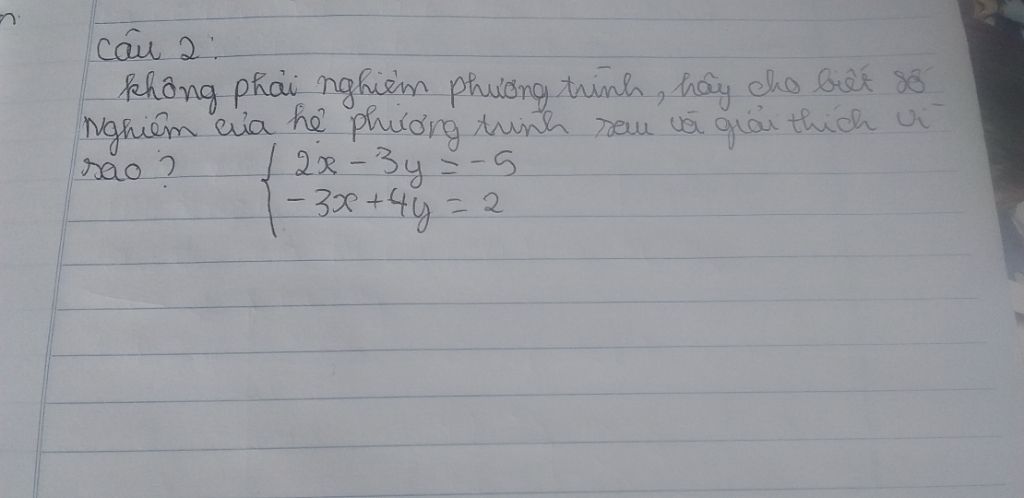 Câu 2:
không phải nghiệm phương trình, hãy cho biết số
Nghiệm của hệ phương trình sau và giải thích vì
sao? { 2x - 3y = -5
-3x + 4y = 2